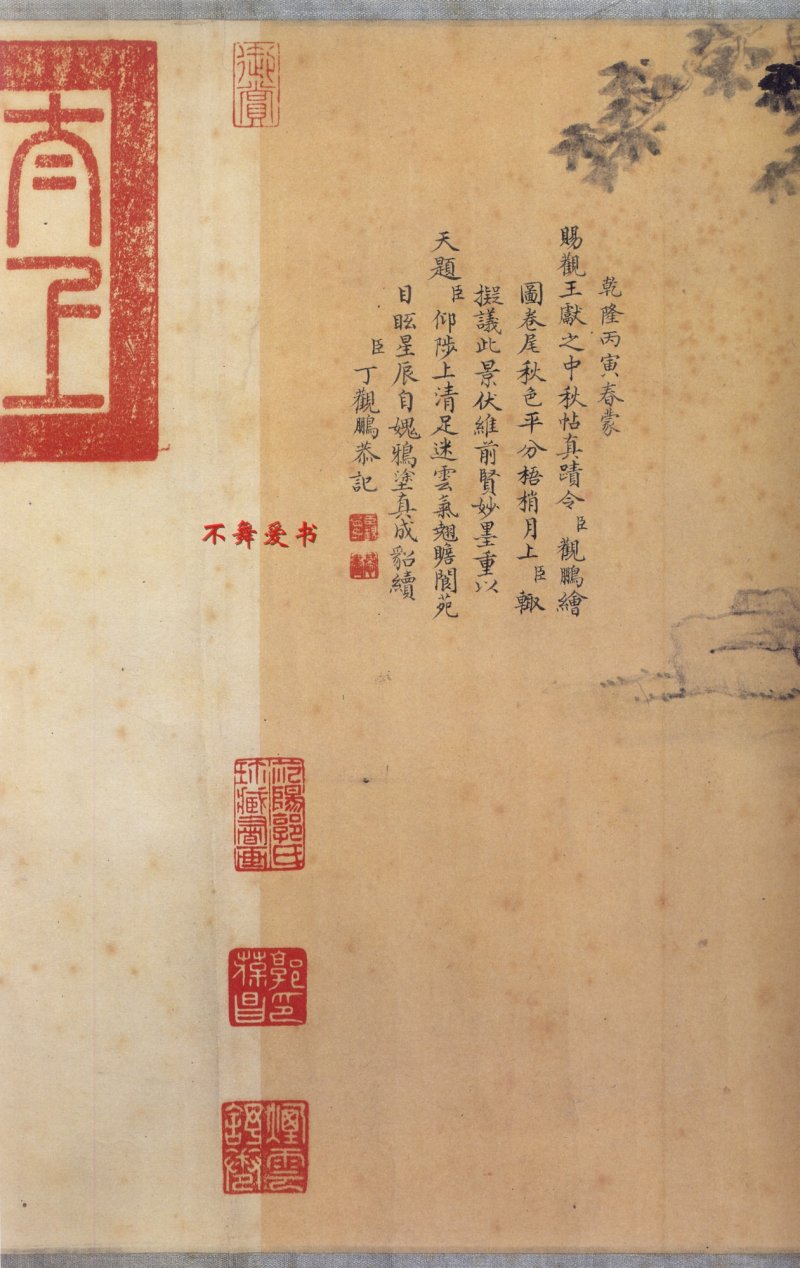 乾隆丙寅春蒙
賜觀王獻之中秋帖真蹟令臣觀鵬繪
圖卷尾秋色平分梧梢月上臣輙
擬議此景伏維前賢妙墨重以
天題臣仰陟上清足迷雲氣翹瞻閬苑
目眩星辰自媿鴉塗真成貂續
臣丁觀鵬恭記
御賞
范陽郭氏
珎藏書畫
郭印
葆昌
不舞爱书